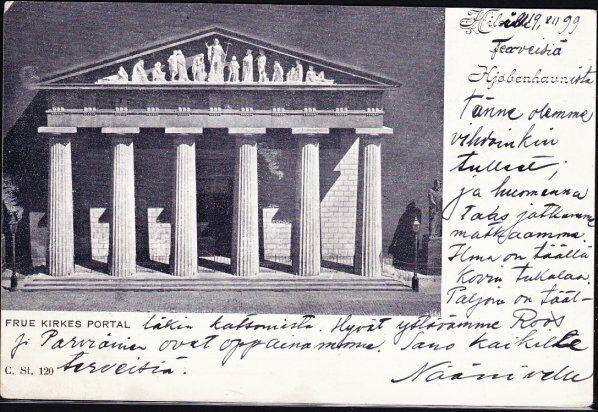 Hilsen 19. XII 99
Terveisiä
Kjøbenhavnista
Tänne olemme
vihdoinkin
tulleet;
ja huomenna
taas jatkamme
matkaamme.
Ilma on täällä
kovin tukalaa.
Paljon on tääl-
FRUE KIRKES PORTAL
läkin katsomista. Hyvät ystävämme Roos
ja Parviainen ovat oppainamme. Sano kaikille
C. St. 120
terveisiä.